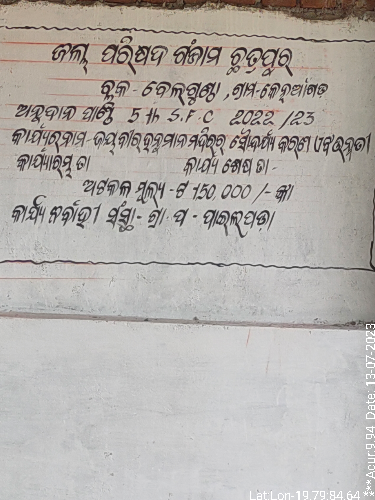 ଜିଲ୍ଲା ପରିଷଦ ଗଞ୍ଜାମ ଛତ୍ରପୁର
ବ୍ଲକ - ବେଲଗୁଣ୍ଠା, ଗ୍ରାମ-
ଅନୁଦାନ ପାଣ୍ଠି 5th S.F.C 2022/23
କାର୍ଯ୍ୟର ନାମ - ଜୟ ବୀର ହନୁମାନ ମନ୍ଦିରର ସୌନ୍ଦର୍ଯ୍ୟ କରଣ ଏବଂ ଉନ୍ନତୀ
କାର୍ଯ୍ୟାରମ୍ଭ ତା କାର୍ଯ୍ୟ ଶେଷ ତା -
ଅଟକଳ ମୂଲ୍ୟ - ଟ 150,000/- ଙ୍କା
କାର୍ଯ୍ୟ ନିର୍ବାହୀ ସଂସ୍ଥା - ଗ୍ରା. ପ - ପାଇଲପଡ଼ା
Lat Lon-19.79:84.64***Acur:9.94, Date: 13-07-2023